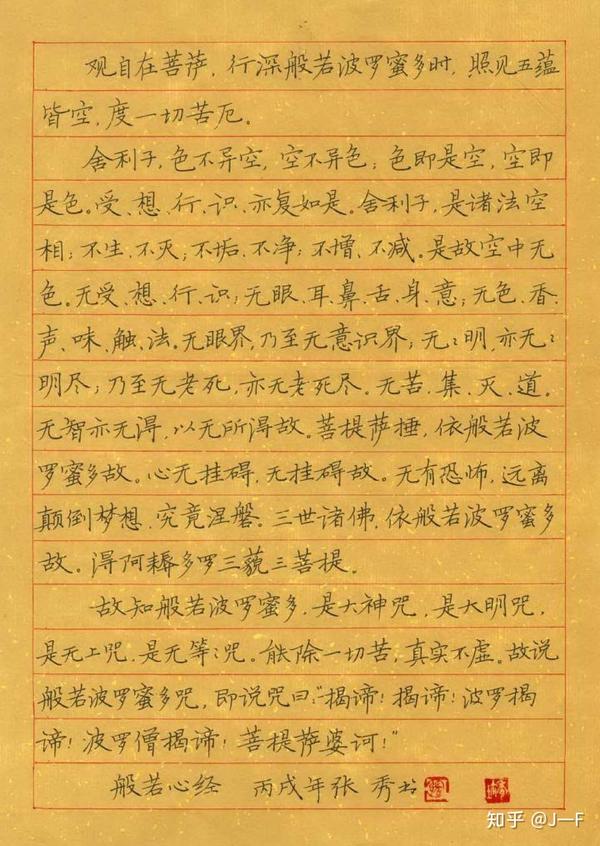 观自在菩萨，行深般若波罗蜜多时，照见五蕴
皆空，度一切苦厄。
舍利子，色不异空，空不异色；色即是空，空即
是色。受、想、行、识、亦复如是。舍利子，是诸法空
相；不生、不灭；不垢、不净；不增、不减。是故空中无
色。无受、想、行、识；无眼、耳、鼻、舌、身、意；无色、香、
声、味、触、法。无眼界，乃至无意识界；无：明，亦无：
明尽；乃至无老死，亦无老死尽。无苦、集、灭、道。
无智亦无得，以无所得故。菩提萨捶，依般若波
罗蜜多故。心无挂碍，无挂碍故。无有恐怖，远离
颠倒梦想，究竟涅磐。三世诸佛，依般若波罗蜜多
故。得阿耨多罗三藐三菩提。
故知般若波罗蜜多，是大神咒，是大明咒，
是无上咒，是无等：咒。能除一切苦，真实不虚。故说
般若波罗蜜多咒，即说咒曰：“揭谛！揭谛！波罗揭
谛！波罗僧揭谛！菩提萨婆诃！”
般若心经 丙戌年张秀书
知乎 @J—F